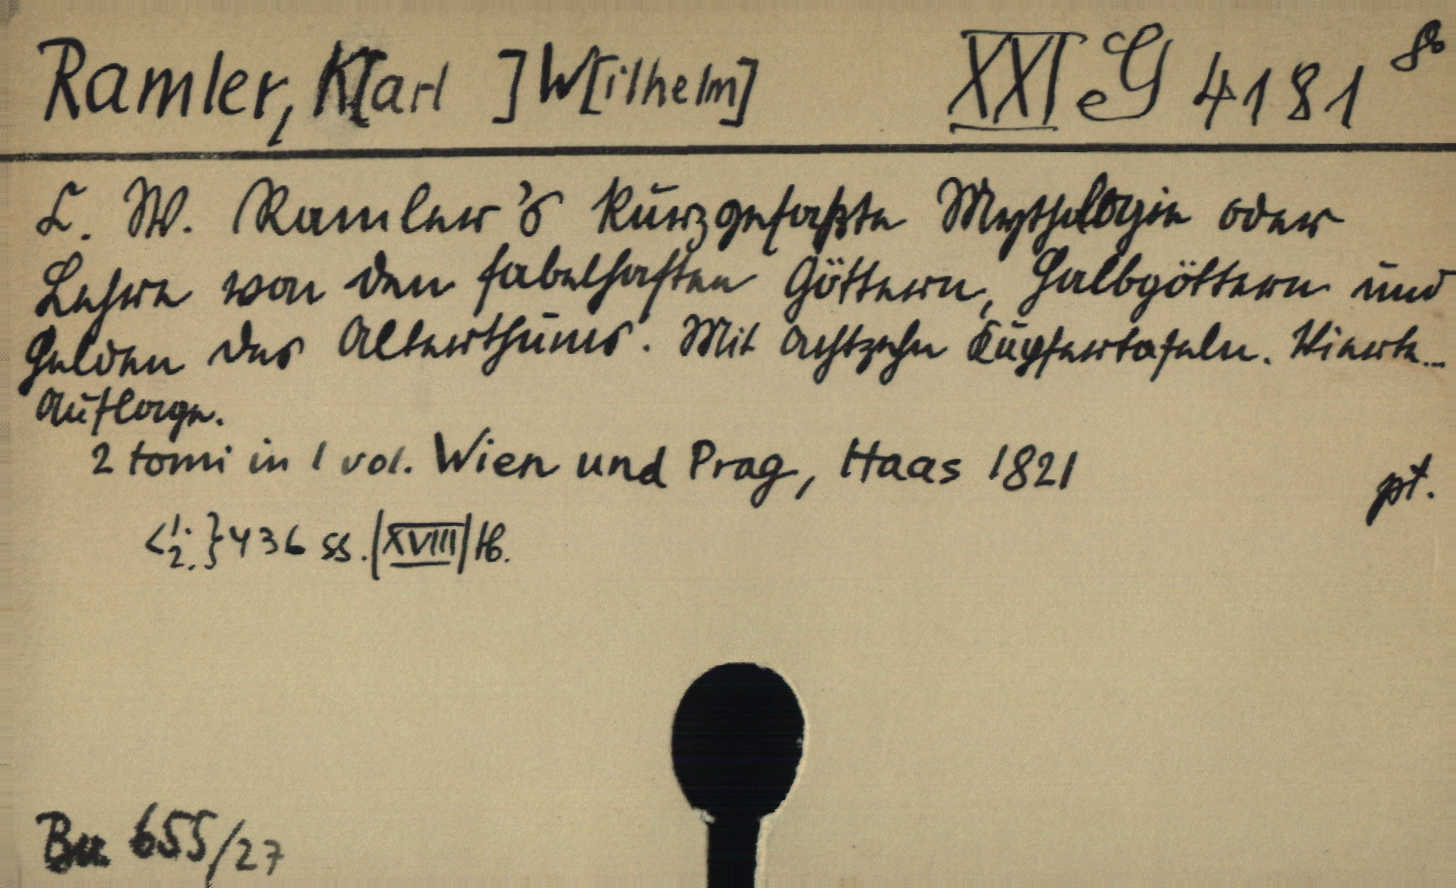 Ramler, K[arl ] W[ilhelm] XXI e G 4181 8o
K. W. Ramler's kurzgefaßte Mythologie oder
Lehre von den fabelhaften Göttern, Halbgöttern und
Helden des Alterthums. Mit achtzehn Kupfertafeln. Vierte...
Auflage.
2 tomi in 1 vol. Wien und Prag, Haas 1821 pt.
<1. 2. } 436 ss. |XVIII| tb.
Bu 655/27